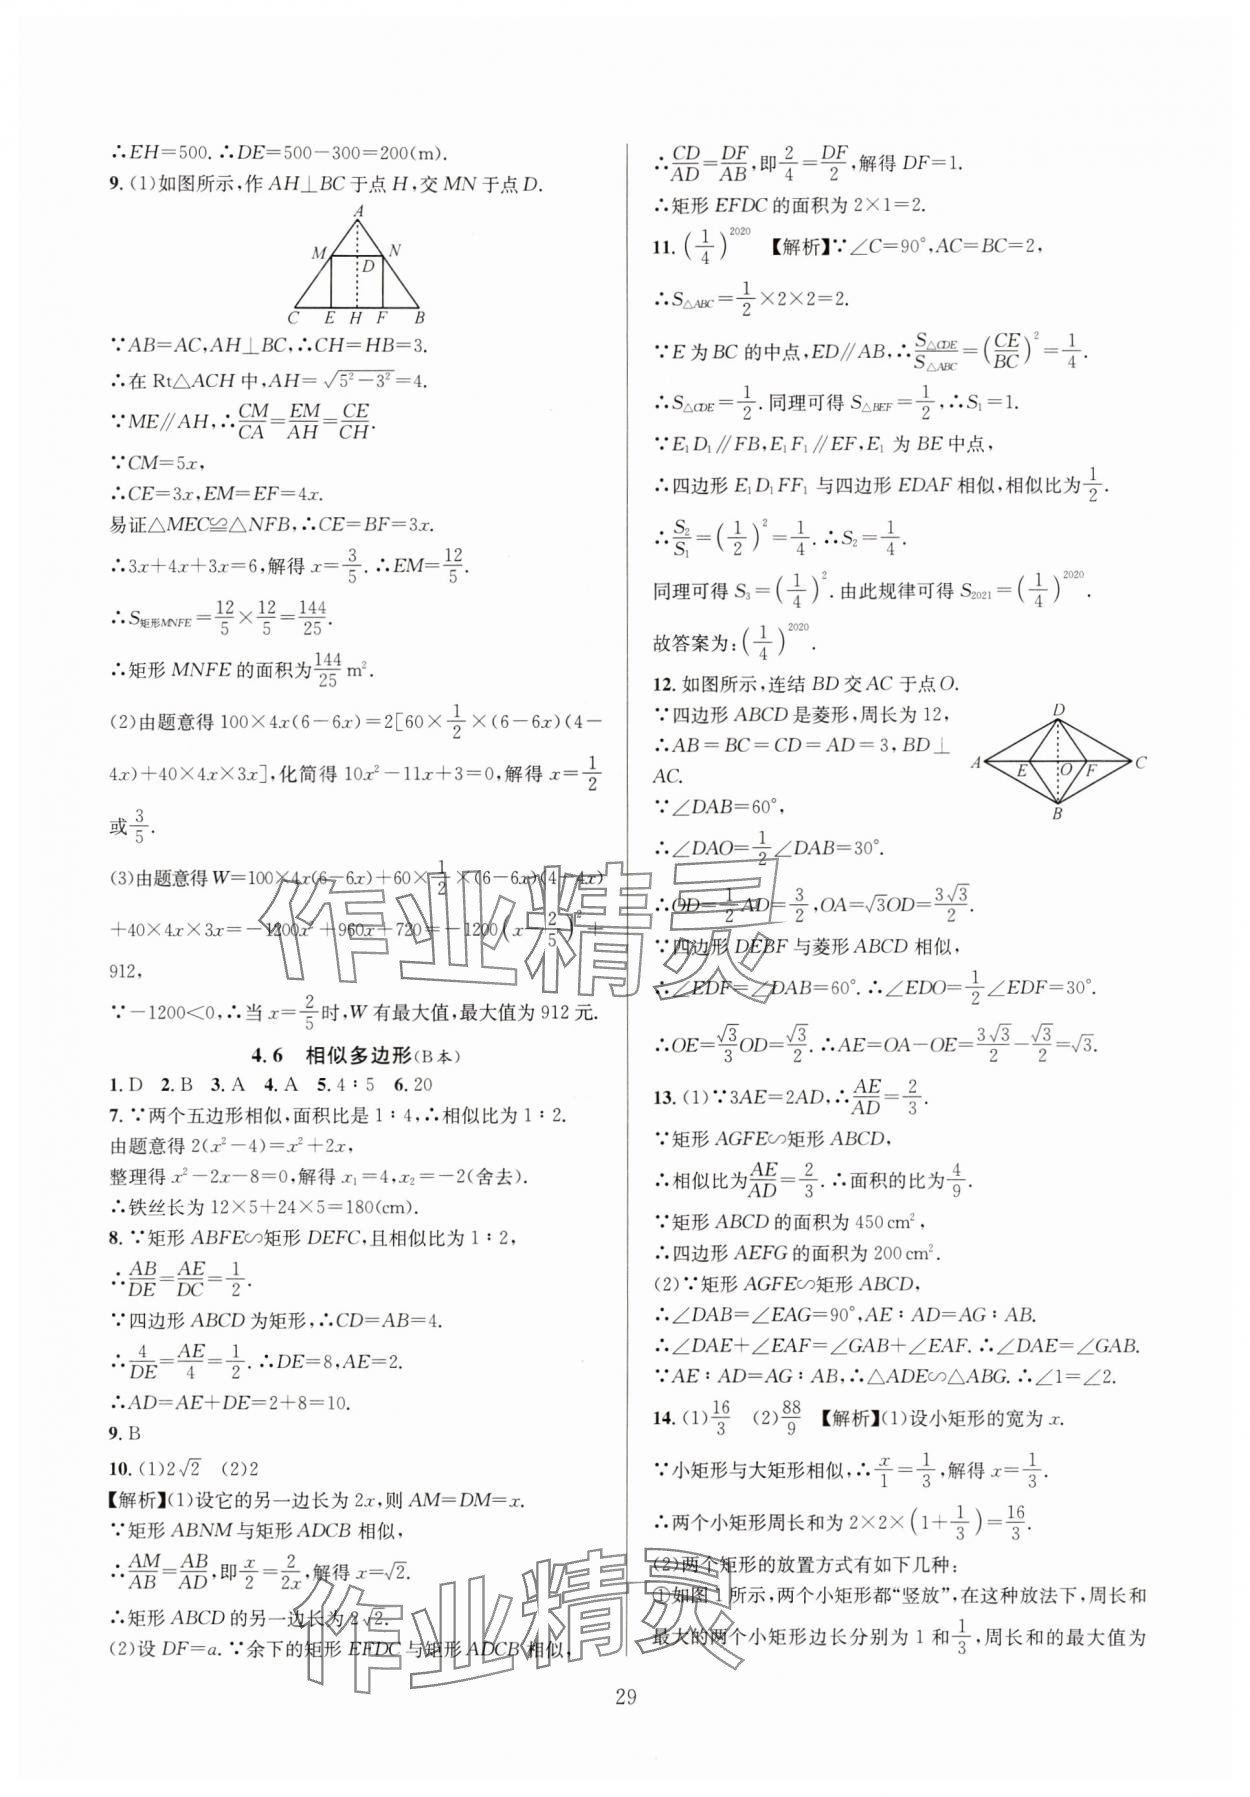 ∴EH=500. ∴DE=500-300=200(m).
9. (1)如图所示,作 AH⊥BC 于点 H,交 MN 于点 D.
A
M N
D
C E H F B
∵AB=AC,AH⊥BC,∴CH=HB=3.
∴在 Rt△ACH 中,AH=√(5²-3²)=4.
∵ME∥AH,∴CM/CA=EM/AH=CE/CH.
∵CM=5x,
∴CE=3x,EM=EF=4x.
易证△MEC≌△NFB,∴CE=BF=3x.
∴3x+4x+3x=6,解得 x=3/5. ∴EM=12/5.
∴S矩形MNFE=12/5×12/5=144/25.
∴矩形 MNFE 的面积为144/25 m².
(2)由题意得 100×4x(6-6x)=2[60×1/2×(6-6x)(4-
4x)+40×4x×3x],化简得 10x²-11x+3=0,解得 x=1/2
或3/5.
(3)由题意得 W=100×4x(6-6x)+60×1/2×(6-6x)(4-4x)
+40×4x×3x=-1200x²+960x+720=-1200(x-2/5)²+
912,
∵-1200<0,∴当 x=2/5时,W 有最大值,最大值为 912 元.
4.6 相似多边形(B本)
1. D 2. B 3. A 4. A 5. 4∶5 6. 20
7. ∵两个五边形相似,面积比是 1∶4,∴相似比为 1∶2.
由题意得 2(x²-4)=x²+2x,
整理得 x²-2x-8=0,解得 x₁=4,x₂=-2(舍去).
∴铁丝长为 12×5+24×5=180(cm).
8. ∵矩形 ABFE∽矩形 DEFC,且相似比为 1∶2,
∴AB/DE=AE/DC=1/2.
∵四边形 ABCD 为矩形,∴CD=AB=4.
∴4/DE=AE/4=1/2. ∴DE=8,AE=2.
∴AD=AE+DE=2+8=10.
9. B
10. (1)2√2 (2)2
【解析】(1)设它的另一边长为 2x,则 AM=DM=x.
∵矩形 ABNM 与矩形 ADCB 相似,
∴AM/AB=AB/AD,即x/2=2/2x,解得 x=√2.
∴矩形 ABCD 的另一边长为 2√2.
(2)设 DF=a. ∵余下的矩形 EFDC 与矩形 ADCB 相似,
∴CD/AD=DF/AB,即2/4=DF/2,解得 DF=1.
∴矩形 EFDC 的面积为 2×1=2.
11. (1/4)²⁰²⁰ 【解析】∵∠C=90°,AC=BC=2,
∴S△ABC=1/2×2×2=2.
∵E 为 BC 的中点,ED∥AB,∴S△CDE/S△ABC=(CE/BC)²=1/4.
∴S△CDE=1/2.同理可得 S△BEF=1/2,∴S₁=1.
∵E₁D₁∥FB,E₁F₁∥EF,E₁ 为 BE 中点,
∴四边形 E₁D₁FF₁ 与四边形 EDAF 相似,相似比为1/2.
∴S₂/S₁=(1/2)²=1/4. ∴S₂=1/4.
同理可得 S₃=(1/4)². 由此规律可得 S₂₀₂₁=(1/4)²⁰²⁰.
故答案为:(1/4)²⁰²⁰.
12. 如图所示,连结 BD 交 AC 于点 O.
∵四边形 ABCD 是菱形,周长为 12,
∴AB=BC=CD=AD=3,BD⊥
AC.
D
A E O F C
B
∵∠DAB=60°,
∴∠DAO=1/2∠DAB=30°.
∴OD=1/2AD=3/2,OA=√3OD=3√3/2.
∵四边形 DEBF 与菱形 ABCD 相似,
∴∠EDF=∠DAB=60°. ∴∠EDO=1/2∠EDF=30°.
∴OE=√3/3OD=√3/2. ∴AE=OA-OE=3√3/2-√3/2=√3.
13. (1)∵3AE=2AD,∴AE/AD=2/3.
∵矩形 AGFE∽矩形 ABCD,
∴相似比为AE/AD=2/3. ∴面积的比为4/9.
∵矩形 ABCD 的面积为 450 cm²,
∴四边形 AEFG 的面积为 200 cm².
(2)∵矩形 AGFE∽矩形 ABCD,
∴∠DAB=∠EAG=90°,AE∶AD=AG∶AB.
∴∠DAE+∠EAF=∠GAB+∠EAF. ∴∠DAE=∠GAB.
∵AE∶AD=AG∶AB,∴△ADE∽△ABG. ∴∠1=∠2.
14. (1)16/3 (2)88/9 【解析】(1)设小矩形的宽为 x.
∵小矩形与大矩形相似,∴x/1=1/3,解得 x=1/3.
∴两个小矩形周长和为 2×2×(1+1/3)=16/3.
(2)两个矩形的放置方式有如下几种:
①如图 1 所示,两个小矩形都“竖放”,在这种放法下,周长和
最大的两个小矩形边长分别为 1 和1/3,周长和的最大值为
29
作业精灵
作业精灵